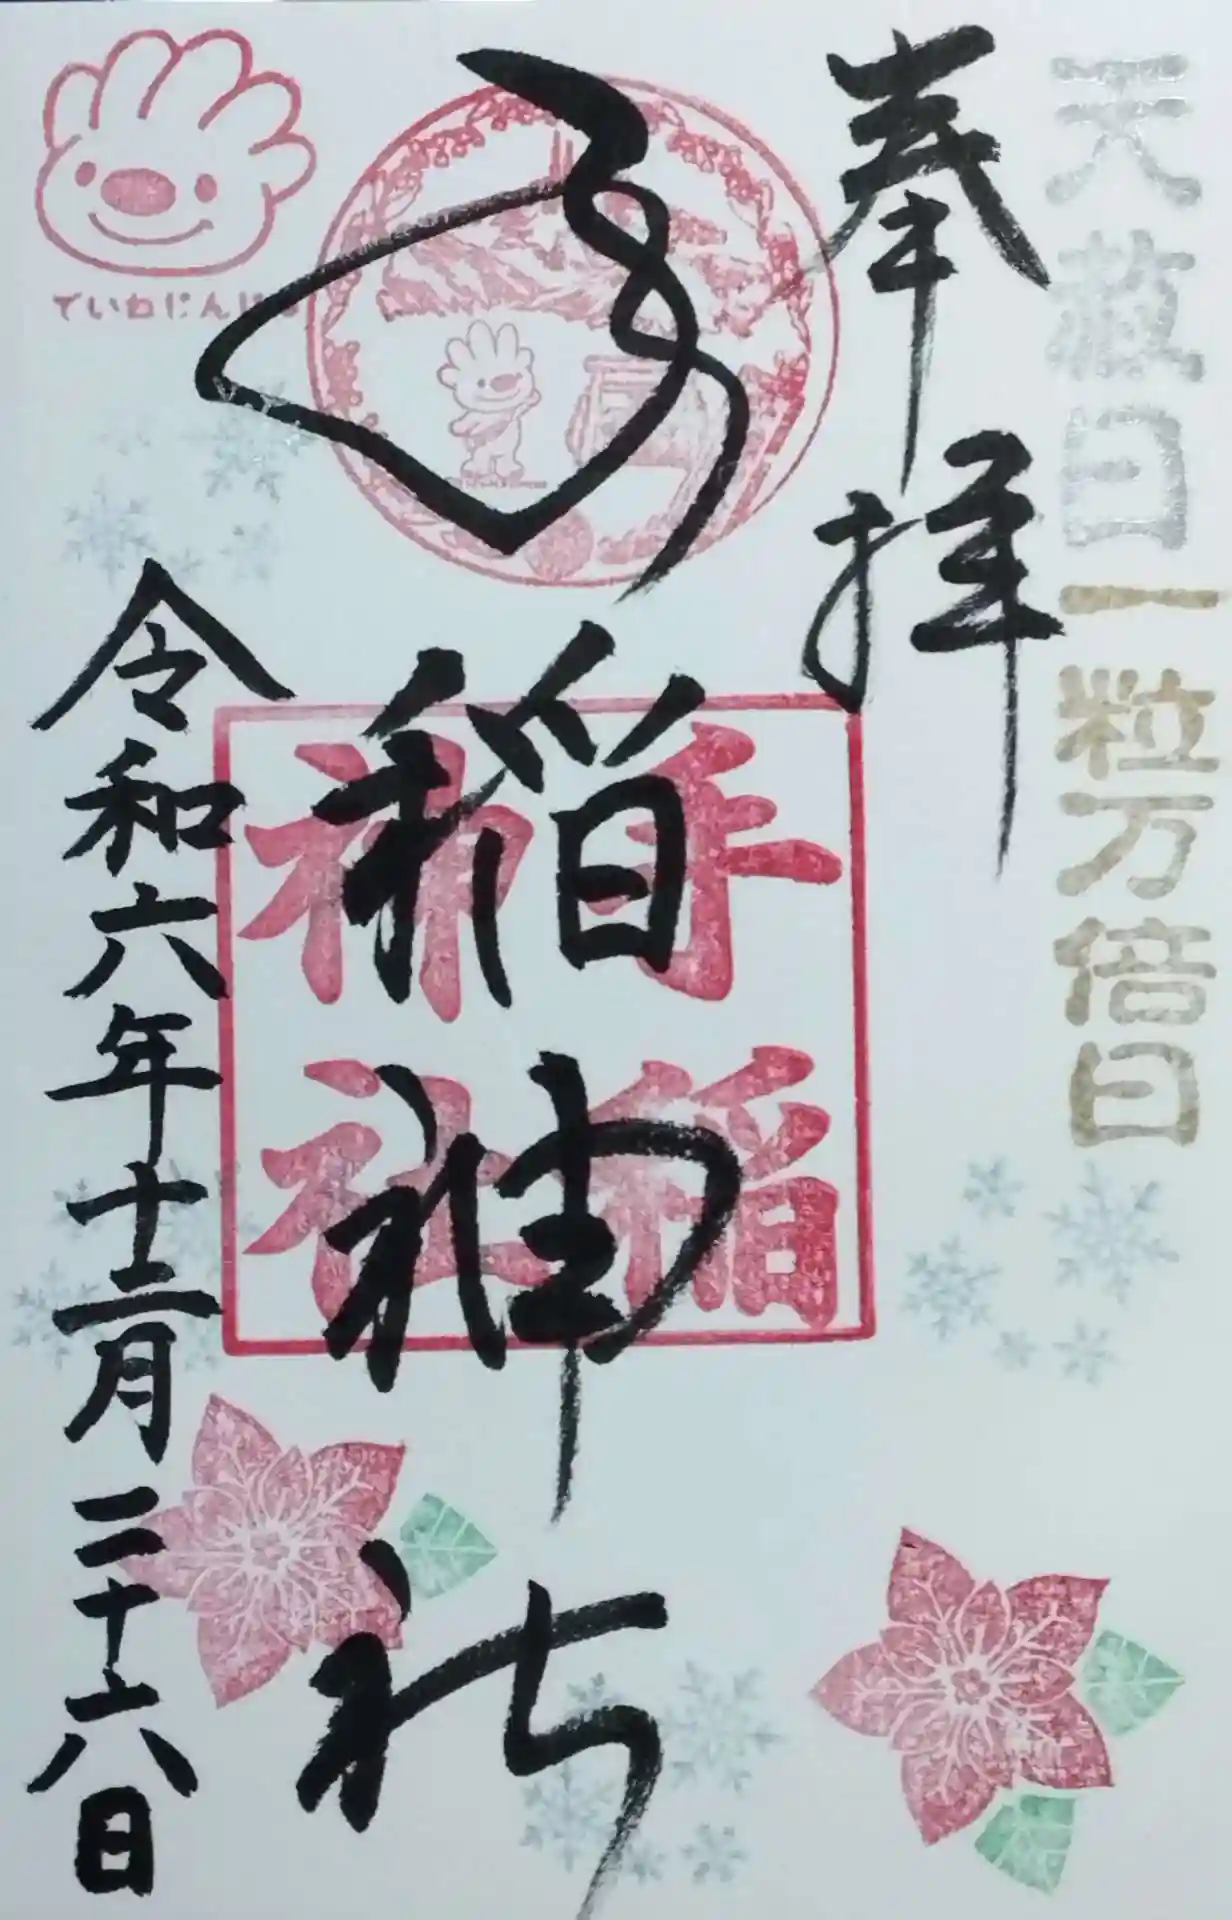 天赦日一粒万倍日
奉拝
手稲神社
手稲
神社
令和六年十二月二十六日
ていねにんじゃ